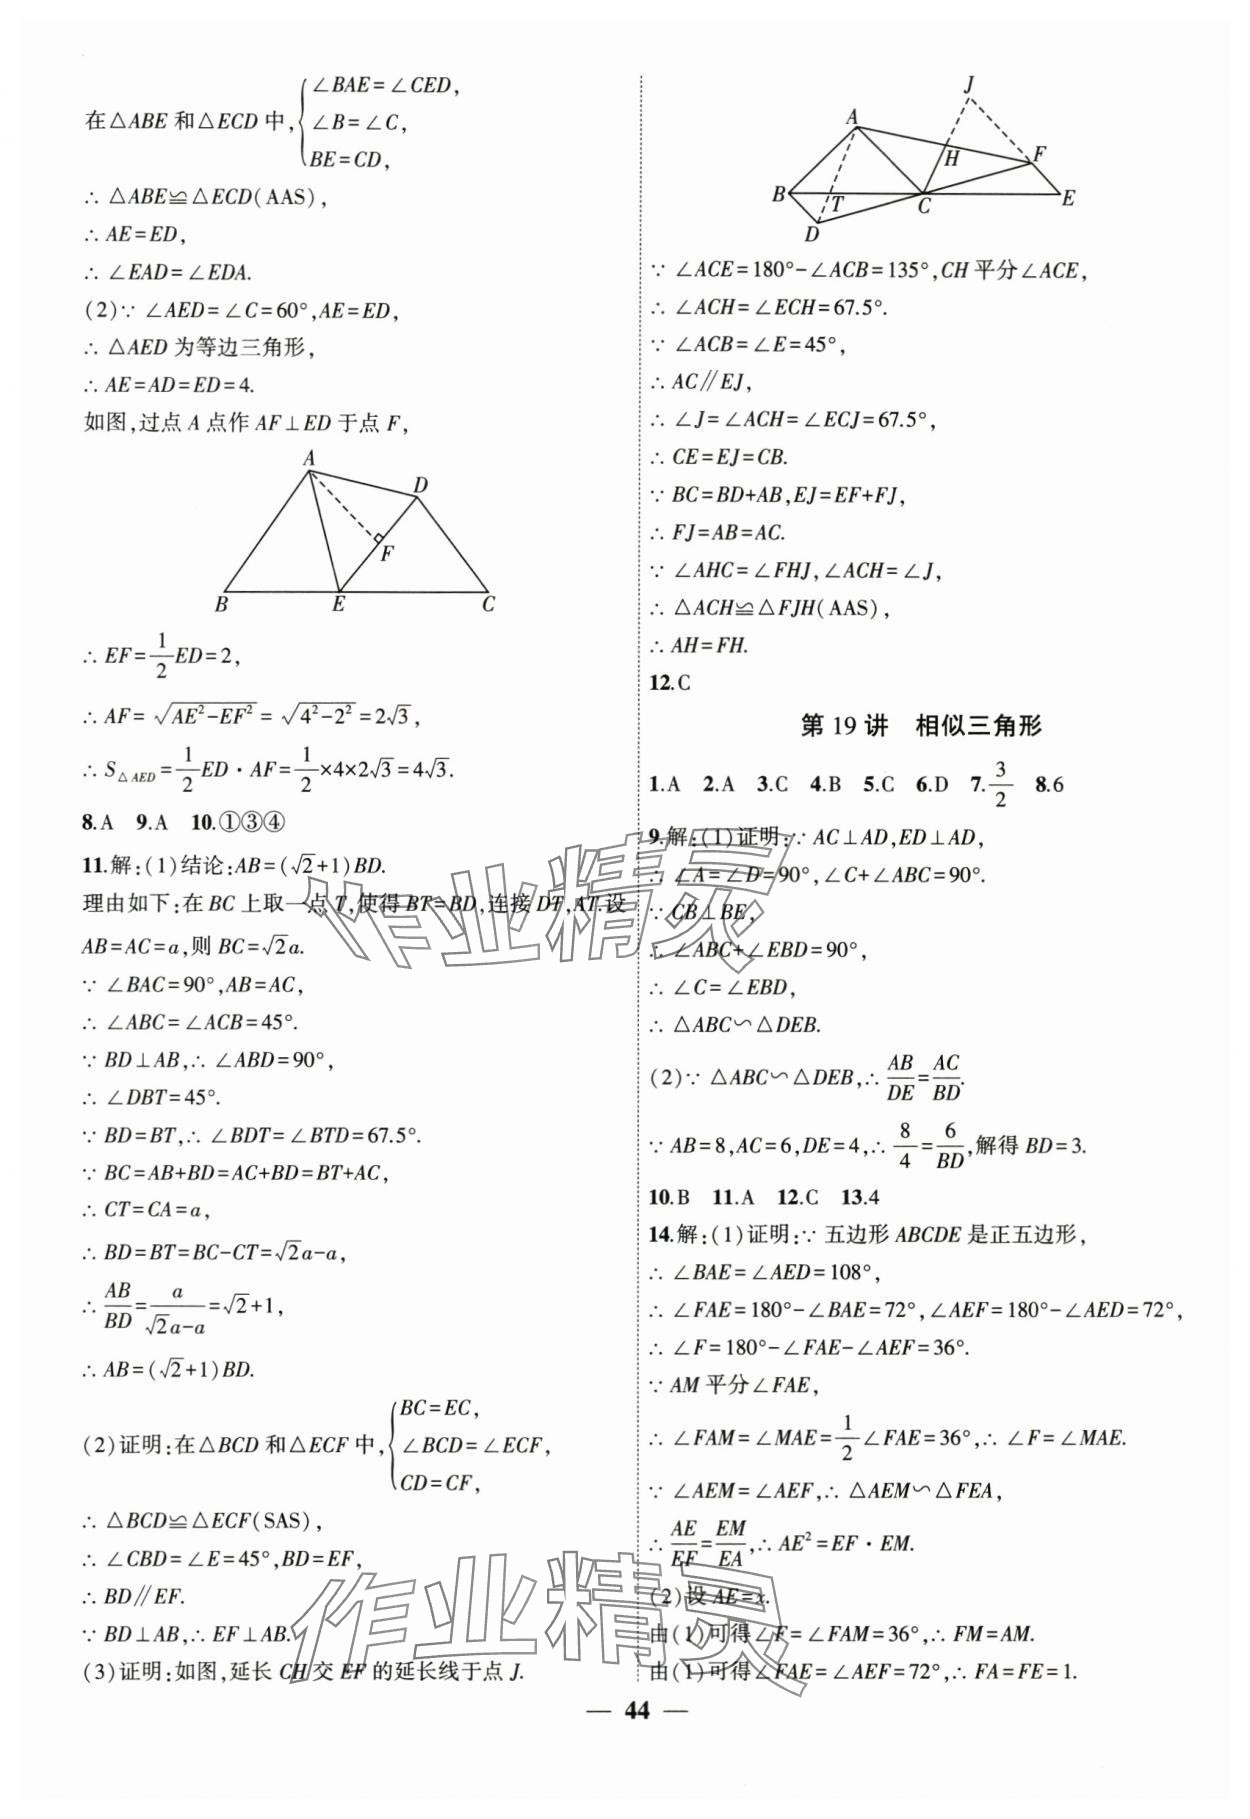 在△ABE 和△ECD 中,{∠BAE=∠CED,
∠B=∠C,
BE=CD,
∴ △ABE≌△ECD(AAS),
∴ AE=ED,
∴ ∠EAD=∠EDA.
(2)∵ ∠AED=∠C=60°,AE=ED,
∴ △AED 为等边三角形,
∴ AE=AD=ED=4.
如图,过点 A 点作 AF⊥ED 于点 F,
A
D
F
B E C
∴ EF=1/2ED=2,
∴ AF=√(AE²-EF²)=√(4²-2²)=2√3,
∴ S△AED=1/2ED·AF=1/2×4×2√3=4√3.
8.A 9.A 10.①③④
11.解:(1)结论:AB=(√2+1)BD.
理由如下:在 BC 上取一点 T,使得 BT=BD,连接 DT,AT.设
AB=AC=a,则 BC=√2a.
∵ ∠BAC=90°,AB=AC,
∴ ∠ABC=∠ACB=45°.
∵ BD⊥AB,∴ ∠ABD=90°,
∴ ∠DBT=45°.
∵ BD=BT,∴ ∠BDT=∠BTD=67.5°.
∵ BC=AB+BD=AC+BD=BT+AC,
∴ CT=CA=a,
∴ BD=BT=BC-CT=√2a-a,
∴ AB/BD=a/(√2a-a)=√2+1,
∴ AB=(√2+1)BD.
(2)证明:在△BCD 和△ECF 中,{BC=EC,
∠BCD=∠ECF,
CD=CF,
∴ △BCD≌△ECF(SAS),
∴ ∠CBD=∠E=45°,BD=EF,
∴ BD∥EF.
∵ BD⊥AB,∴ EF⊥AB.
(3)证明:如图,延长 CH 交 EF 的延长线于点 J.
J
A
H F
B T C E
D
∵ ∠ACE=180°-∠ACB=135°,CH 平分∠ACE,
∴ ∠ACH=∠ECH=67.5°.
∵ ∠ACB=∠E=45°,
∴ AC∥EJ,
∴ ∠J=∠ACH=∠ECJ=67.5°,
∴ CE=EJ=CB.
∵ BC=BD+AB,EJ=EF+FJ,
∴ FJ=AB=AC.
∵ ∠AHC=∠FHJ,∠ACH=∠J,
∴ △ACH≌△FJH(AAS),
∴ AH=FH.
12.C
第 19 讲 相似三角形
1.A 2.A 3.C 4.B 5.C 6.D 7.3/2 8.6
9.解:(1)证明:∵ AC⊥AD,ED⊥AD,
∴ ∠A=∠D=90°,∠C+∠ABC=90°.
∵ CB⊥BE,
∴ ∠ABC+∠EBD=90°,
∴ ∠C=∠EBD,
∴ △ABC∽△DEB.
(2)∵ △ABC∽△DEB,∴ AB/DE=AC/BD.
∵ AB=8,AC=6,DE=4,∴ 8/4=6/BD,解得 BD=3.
10.B 11.A 12.C 13.4
14.解:(1)证明:∵ 五边形 ABCDE 是正五边形,
∴ ∠BAE=∠AED=108°,
∴ ∠FAE=180°-∠BAE=72°,∠AEF=180°-∠AED=72°,
∴ ∠F=180°-∠FAE-∠AEF=36°.
∵ AM 平分∠FAE,
∴ ∠FAM=∠MAE=1/2∠FAE=36°,∴ ∠F=∠MAE.
∵ ∠AEM=∠AEF,∴ △AEM∽△FEA,
∴ AE/EF=EM/EA,∴ AE²=EF·EM.
(2)设 AE=x.
由(1)可得∠F=∠FAM=36°,∴ FM=AM.
由(1)可得∠FAE=∠AEF=72°,∴ FA=FE=1.
— 44 —
作业精灵
作业精灵